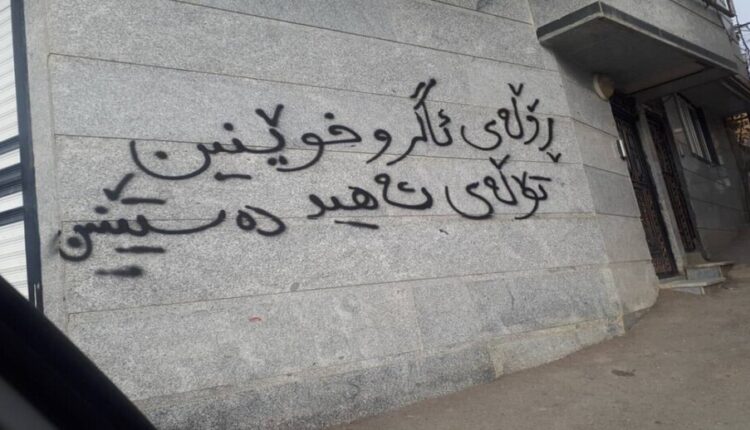 ڕۆڵەی ئاگر و خوێنین
تۆڵەی شەهید دەستێنین